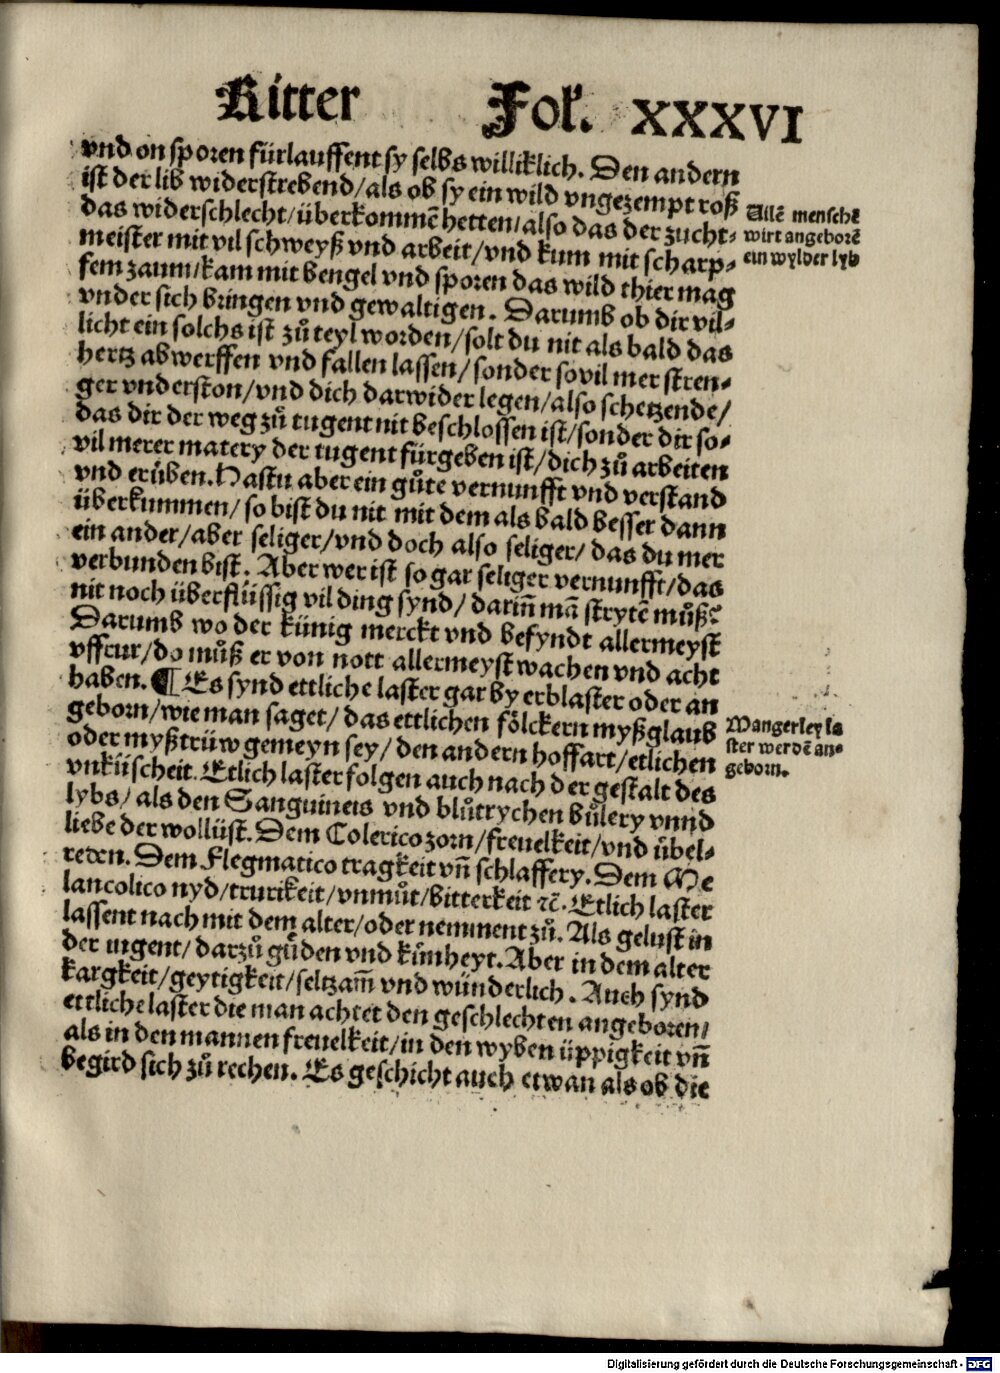 Ritter Fol. XXXVI
vnd on sporen fürlauffent sy selbs williklich. Den andern
ist der lib widerstrebend/als ob sy ein wild vngezempt roß
das widerschlecht/überkommē hetten/also das der zucht⸗
meister mit vil schweyß vnd arbeit/vnd kum mit scharp⸗
fem zaum/kam mit bengel vnd sporen das wild thier mag
vnder sich bringen vnd gewaltigen. Darumb ob dir vil⸗
licht ein solchs ist zuͦ teyl worden/solt du nit als bald das
hertz abwerffen vnd fallen lassen/sonder so vil mer stren⸗
ger vnderston/vnd dich darwider legen/also schetzende/
das dir der weg zuͦ tugent nit beschlossen ist/sonder dir so⸗
vil merer matery der tugent fürgeben ist/dich zuͦ arbeiten
vnd erüben. Hastu aber ein guͦte vernunfft vnd verstand
überkummen/so bist du nit mit dem als bald besser dann
ein ander/aber seliger/vnd doch also seliger/das du mer
verbunden bist. Aber wer ist so gar seliger vernunfft/das
nit noch überflüssig vil ding synd/darin̄ mā strytē muͦß?
Darumb wo der künig merckt vnd befyndt allermeyst
vffrur/do muͦß er von nott allermeyst wachen vnd acht
haben. ¶ Es synd ettliche laster gar by erblaster oder an
geborn/wie man saget/das ettlichen fölckern myßglaub
oder myßtrüw gemeyn sey/den andern hoffart/etlichen
vnküscheit. Etlich laster folgen auch nach der gestalt des
lybs/als den Sanguineis vnd bluͦtrychen buͦlery vnnd
liebe der wollüst. Dem Colerico zorn/freuelkeit/vnd übel⸗
reden. Dem Flegmatico tragkeit vn̄ schlaffery. Dem Me
lancolico nyd/trurikeit/vnmuͦt/bitterkeit ꝛc̄. Etlich laster
lassent nach mit dem alter/oder nemment zuͦ. Als gelust in
der iugent/darzuͦ güden vnd kuͦnheyt. Aber in dem alter
kargkeit/geytigkeit/seltzam̄ vnd wünderlich. Auch synd
ettliche laster die man achtet den geschlechten angeboren/
als in den mannen freuelkeit/in den wyben üppigkeit vn̄
begird sich zuͦ rechen. Es geschicht auch etwan als ob die
Allē menschē
wirt angeborē
ein wylder lyb
Mangerley la
ster werdē an⸗
geborn.
Digitalisierung gefördert durch die Deutsche Forschungsgemeinschaft - DFG